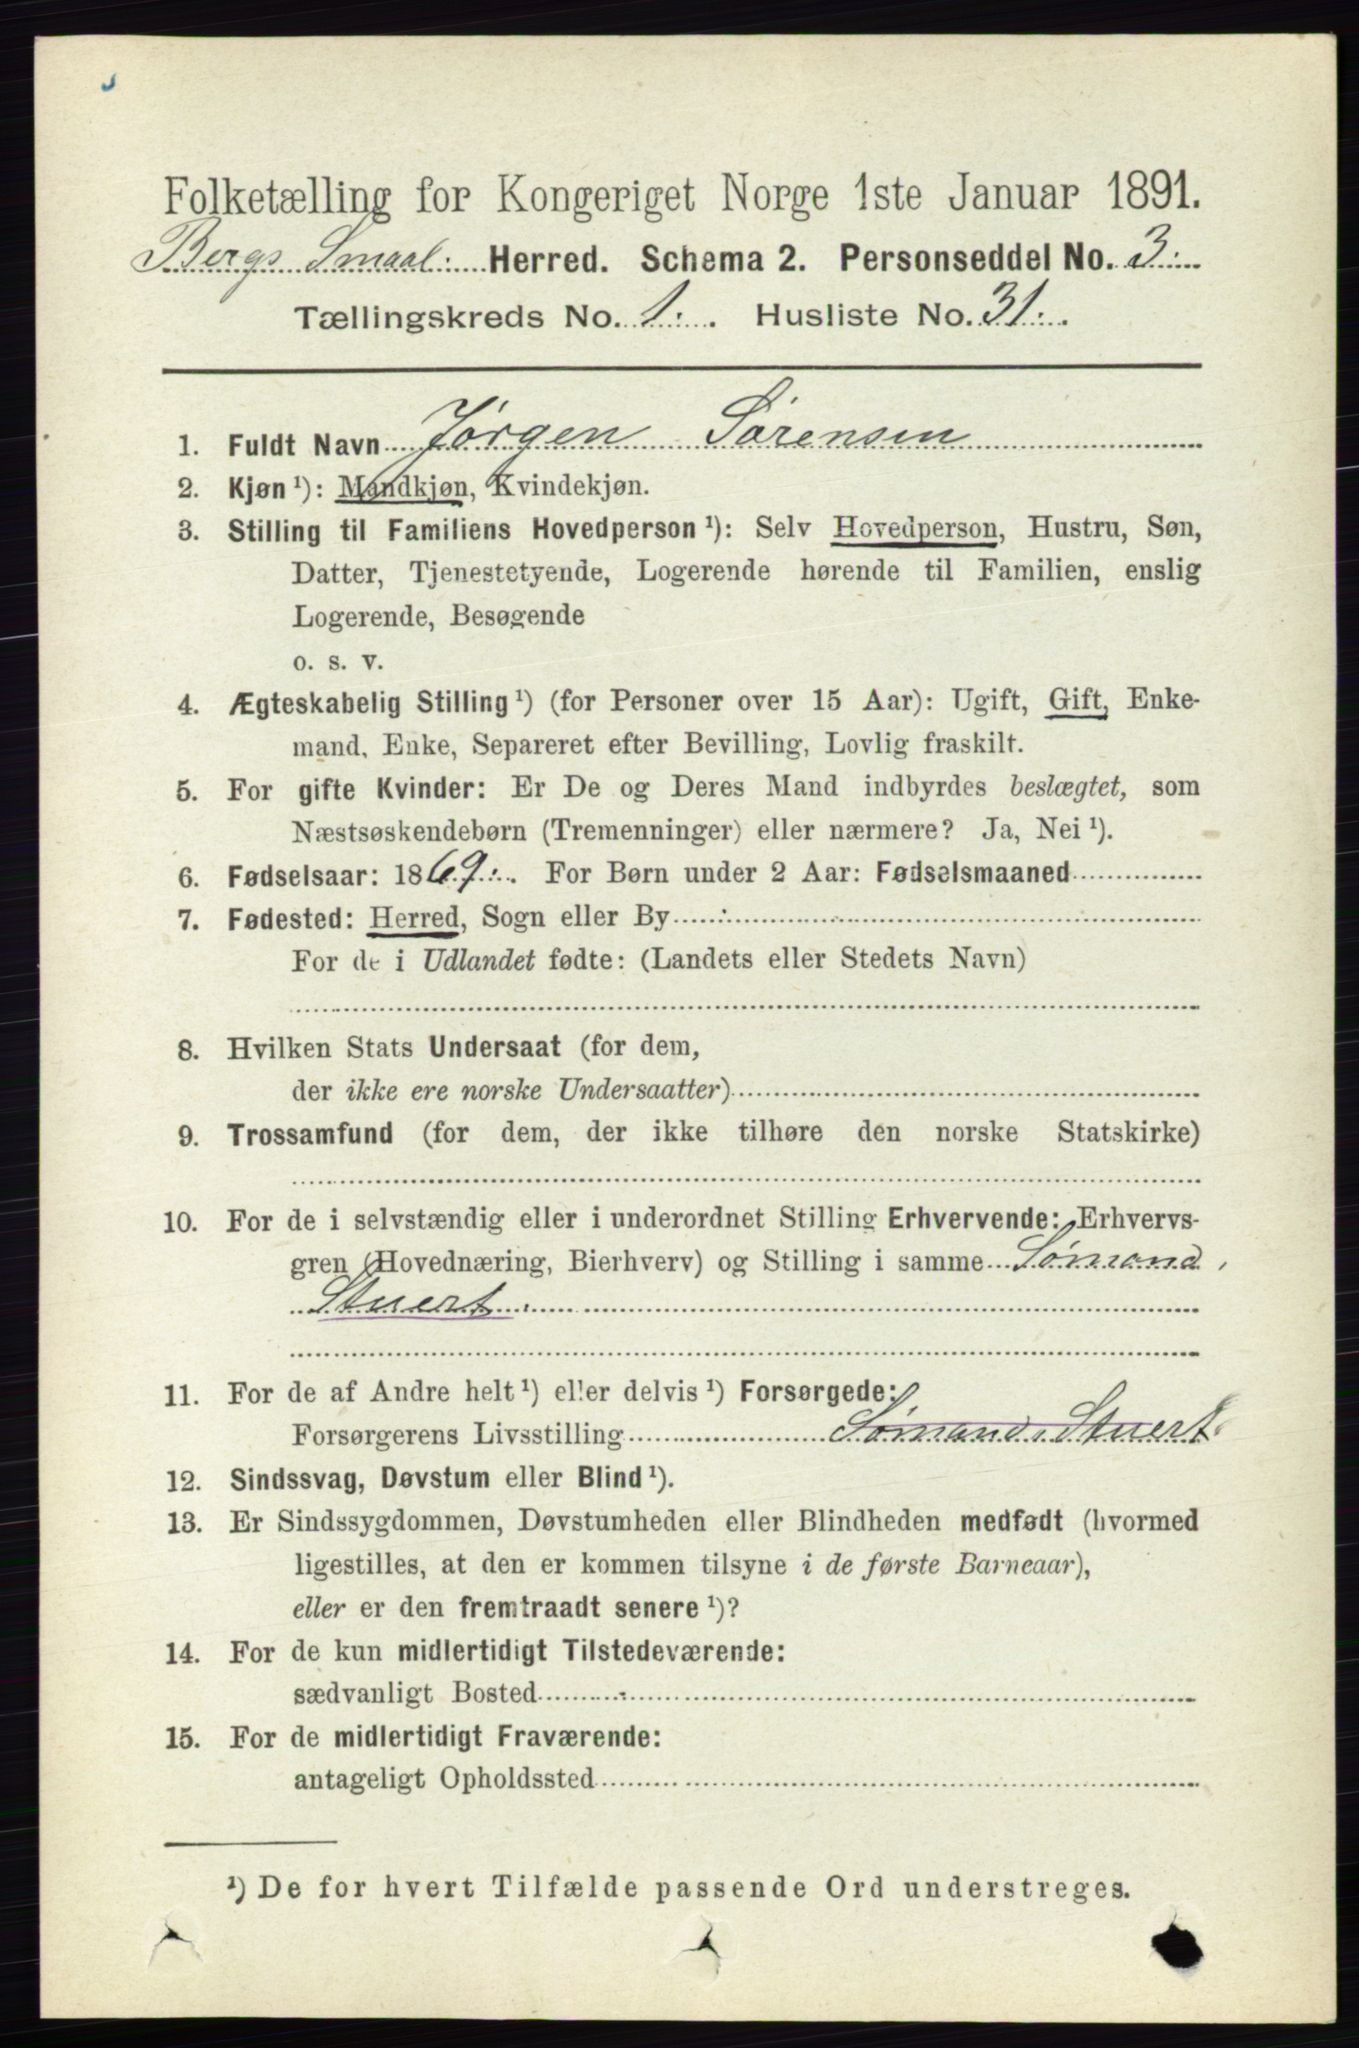 Folketælling for Kongeriget Norge 1ste Januar 1891.
Bergs Smaal. Herred. Schema 2. Personseddel No. 3.
Tællingskreds No. 1. Husliste No. 31.
1. Fuldt Navn Jørgen Sørensen
2. Kjøn ¹): Mandkjøn, Kvindekjøn.
3. Stilling til Familiens Hovedperson ¹): Selv Hovedperson, Hustru, Søn,
Datter, Tjenestetyende, Logerende hørende til Familien, enslig
Logerende, Besøgende
o. s. v.
4. Ægteskabelig Stilling ¹) (for Personer over 15 Aar): Ugift, Gift, Enke-
mand, Enke, Separeret efter Bevilling, Lovlig fraskilt.
5. For gifte Kvinder: Er De og Deres Mand indbyrdes beslægtet, som
Næstsøskendebørn (Tremenninger) eller nærmere? Ja, Nei ¹).
6. Fødselsaar: 1869. For Børn under 2 Aar: Fødselsmaaned
7. Fødested: Herred, Sogn eller By
For de i Udlandet fødte: (Landets eller Stedets Navn)
8. Hvilken Stats Undersaat (for dem,
der ikke ere norske Undersaatter)
9. Trossamfund (for dem, der ikke tilhøre den norske Statskirke)
10. For de i selvstændig eller i underordnet Stilling Erhvervende: Erhvervs-
gren (Hovednæring, Bierhverv) og Stilling i samme Sømand,
Stuert.
11. For de af Andre helt ¹) eller delvis ¹) Forsørgede:
Forsørgerens Livsstilling Sømand, Stuert
12. Sindssvag, Døvstum eller Blind ¹).
13. Er Sindssygdommen, Døvstumheden eller Blindheden medfødt (hvormed
ligestilles, at den er kommen tilsyne i de første Barneaar),
eller er den fremtraadt senere ¹)?
14. For de kun midlertidigt Tilstedeværende:
sædvanligt Bosted
15. For de midlertidigt Fraværende:
antageligt Opholdssted
¹) De for hvert Tilfælde passende Ord understreges.